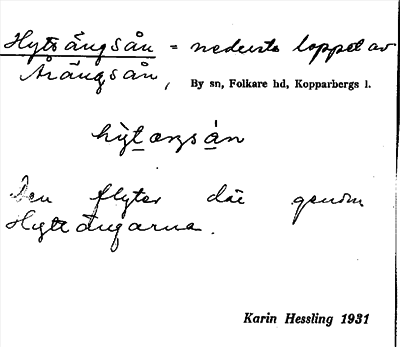 Hytts ängsån = nedersta loppet av
Årängsån, By sn, Folkare hd, Kopparbergs l.
hỳt æŋsån
Den flyter där genom
Hyttängarna.
Karin Hessling 1931